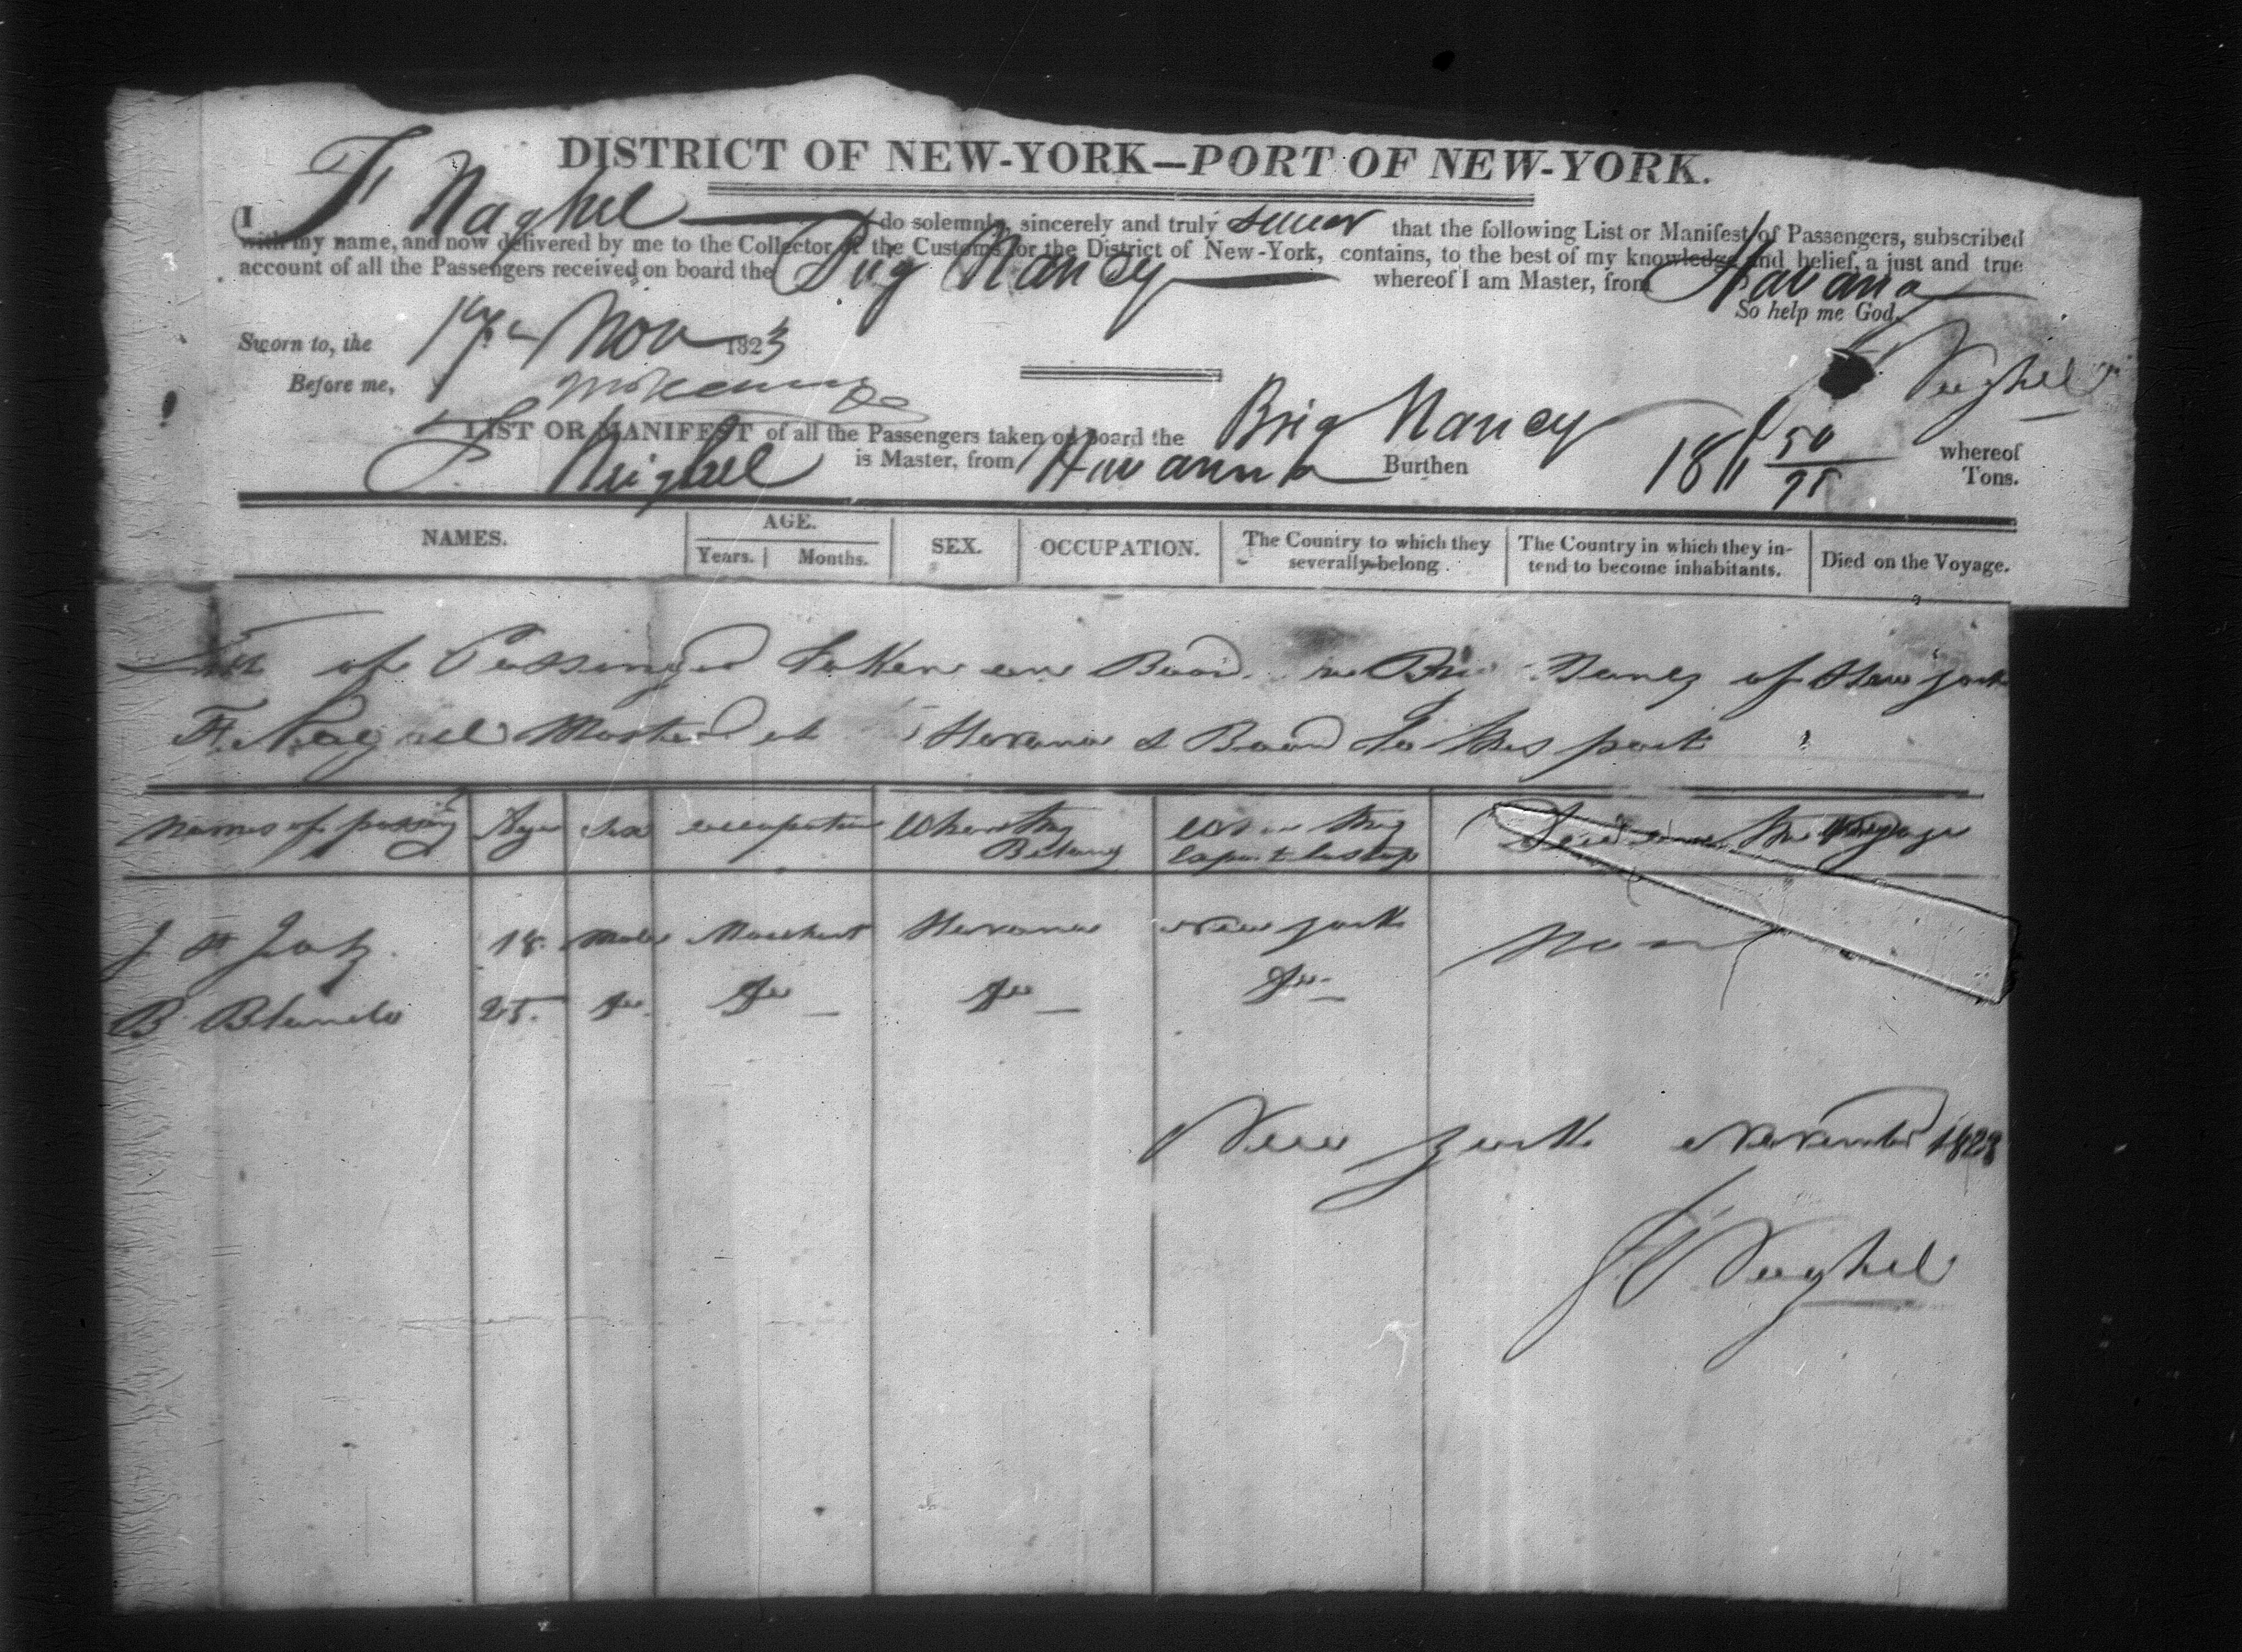 DISTRICT OF NEW-YORK—PORT OF NEW-YORK.
I F Naghel do solemnly, sincerely and truly swear that the following List or Manifest of Passengers, subscribed
with my name, and now delivered by me to the Collector of the Customs for the District of New-York, contains, to the best of my knowledge and belief, a just and true
account of all the Passengers received on board the Brig Nancy whereof I am Master, from Havana
So help me God.
Sworn to, the 17 Nov 1823
Before me,
Neghel
LIST OR MANIFEST of all the Passengers taken on board the Brig Nancy whereof
F Neighel is Master, from Havanna Burthen 181 50/95 Tons.
NAMES. AGE. Years. Months. SEX. OCCUPATION. The Country to which they severally belong. The Country in which they intend to become inhabitants. Died on the Voyage.
List of Passengers taken on Board the Brig Nancy of New york
F. Master at Havana & Bound to this port
Names of passengers Age Sex occupation Where they Belong Died on the Voyage
J 18 Male Merchant Havana New york Non
B. 25 do do do do
New york November 1823
F Neghel